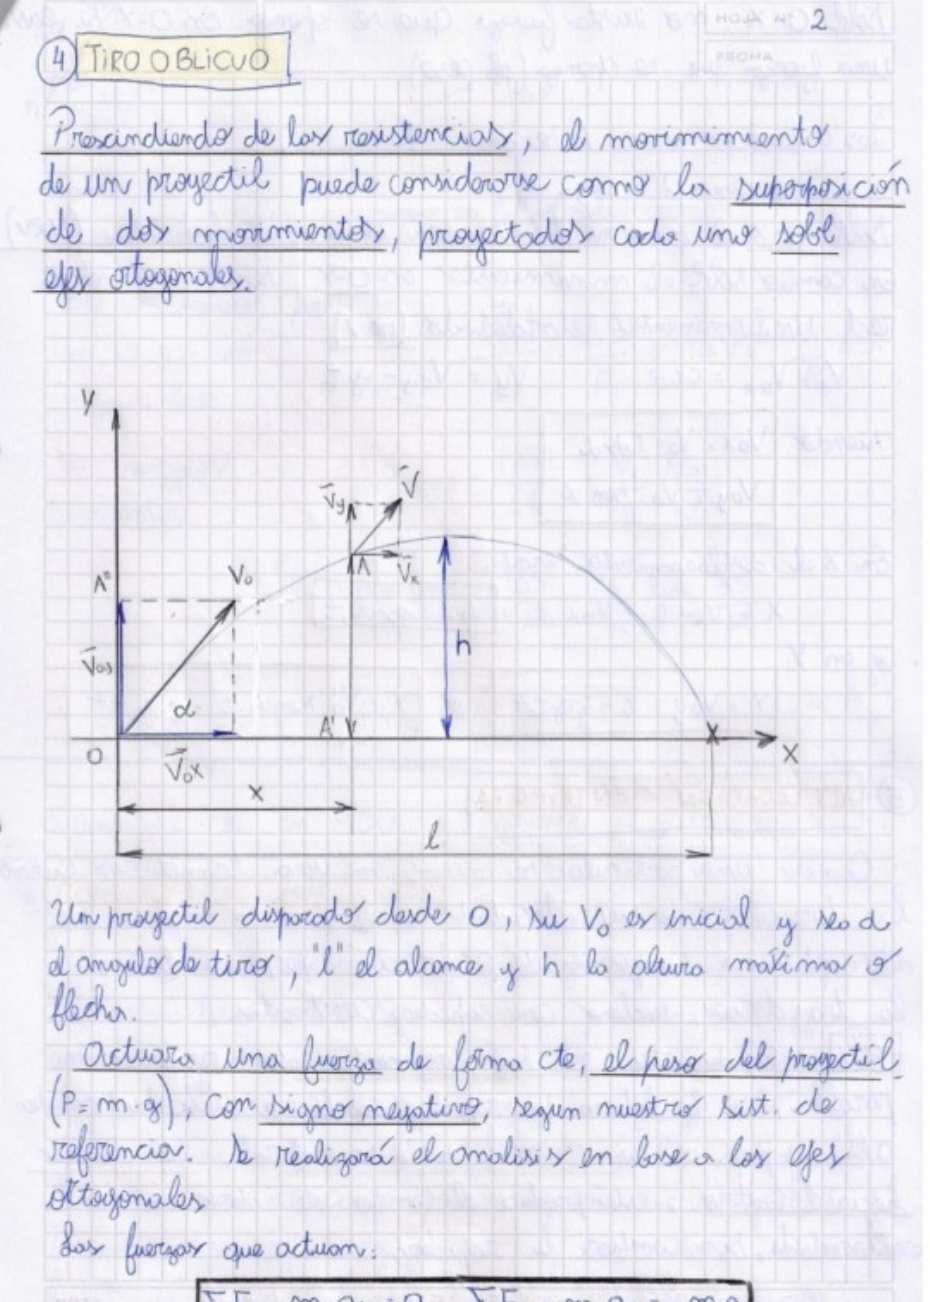 2
HOJA Nº
FECHA
4 TIRO OBLICUO
Prescindiendo de las resistencias, el movimimiento
de un proyectil puede considerarse como la superposición
de dos movimientos, proyectados cada uno sobre
ejes ortogonales.
y
V̄y V̄
A V̄x
A" V₀
V̄oy h
α
O A' X
V̄₀x
x
l
Un proyectil disparado desde O, su V₀ es inicial y sea α
el angulo de tiro, "l" el alcance y h la altura máxima o
flecha.
Actuara una fuerza de forma cte, el peso del proyectil
(P=m.g), con signo negativo, segun nuestro sist. de
referencia. Se realizará el analisis en base a los ejes
ottogonales
Las fuerzas que actuan: